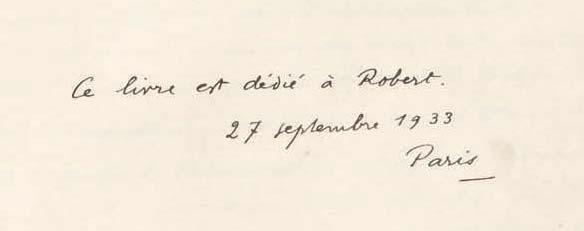 Ce livre est dédié à Robert.
27 septembre 1933
Paris